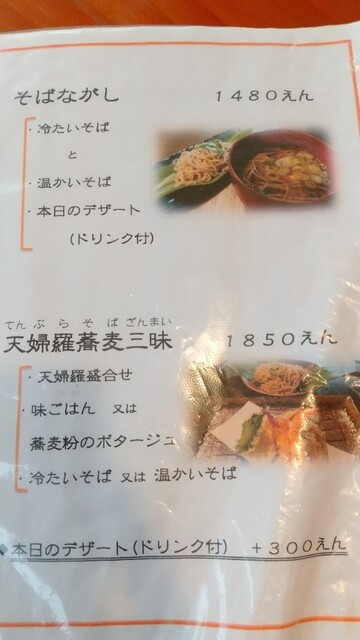 そばながし　１４８０えん
・冷たいそば
と
・温かいそば
・本日のデザート
（ドリンク付）
てんぷらそばざんまい
天婦羅蕎麦三昧　１８５０えん
・天婦羅盛合せ
・味ごはん　又は
蕎麦粉のポタージュ
・冷たいそば 又は 温かいそば
◆本日のデザート（ドリンク付）　＋３００えん